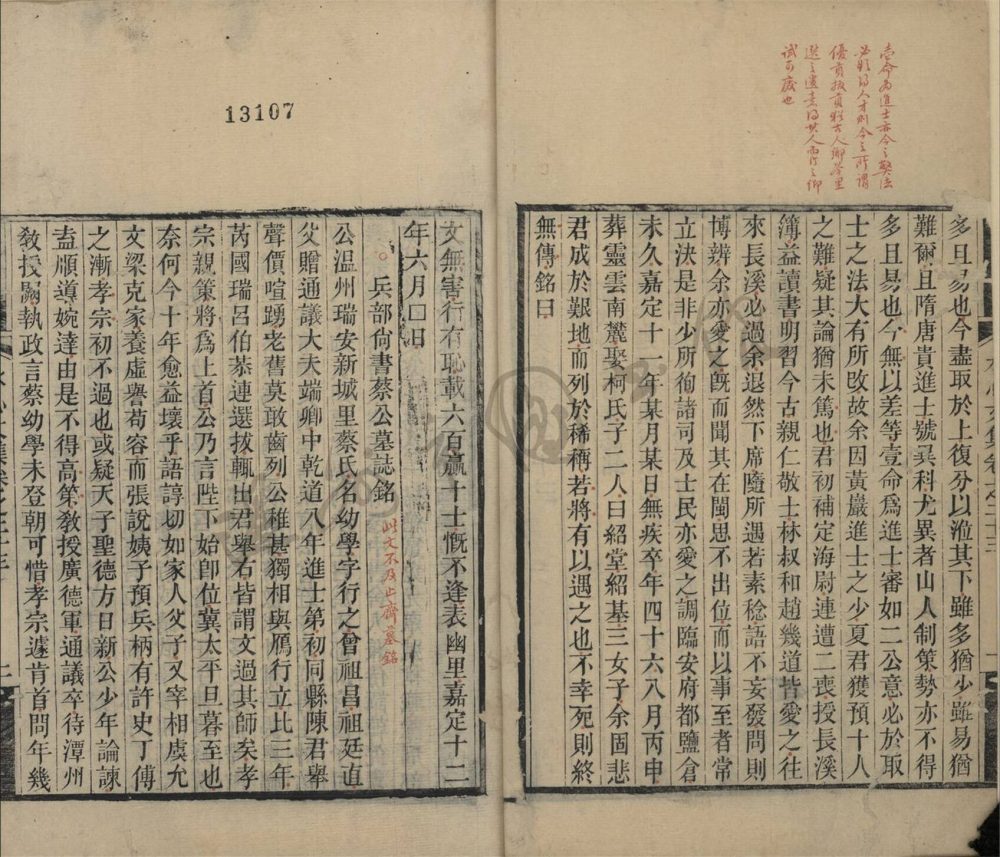 壹命為進士亦今之獎法
優貢拔貢猶古人鄉學里
選之遺意
試可廢也
多且易也今盡取於上復分以涖其下雖多猶少雖易猶
難爾且隋唐貴進士號異科尤異者山人制策勢亦不得
多且易也今無以差等壹命爲進士審如二公意必於取
士之法大有所改故余因黃巖進士之少夏君獲預十人
之難疑其論猶未篤也君初補定海尉連遭二喪授長溪
簿益讀書明習今古親仁敬士林叔和趙幾道皆愛之往
來長溪必過余退然下席隨所遇若素稔語不妄發問則
博辨余亦愛之旣而聞其在閩思不出位而以事至者常
立決是非少所徇諸司及士民亦愛之調臨安府都鹽倉
未久嘉定十一年某月某日無疾卒年四十六八月丙申
葬靈雲南麓娶柯氏子二人曰紹堂紹基三女子余固悲
君成於艱地而列於稀稱若將有以遇之也不幸死則終
無傳銘曰
13107
文無害行有恥載六百贏十士慨不逢表幽里嘉定十二
年六月□日
兵部尙書蔡公墓誌銘
此文不及止齋墓銘
公溫州瑞安新城里蔡氏名幼學字行之曾祖昌祖廷直
父贈通議大夫端卿中乾道八年進士第初同縣陳君舉
聲價喧踴老舊莫敢齒列公稚甚獨相與鴈行立比三年
芮國瑞呂伯恭連選拔輒出君舉右皆謂文過其師矣孝
宗親策將爲上首公乃言陛下始卽位冀太平旦暮至也
奈何今十年愈益壞乎語諄切如家人父子又宰相虞允
文梁克家養虛譽苟容而張說姨子預兵柄有許史丁傅
之漸孝宗初不過也或疑天子聖德方日新公少年論諫
盍順導婉達由是不得高第敎授廣德軍通議卒待潭州
敎授闕執政言蔡幼學未登朝可惜孝宗遽肯首問年幾